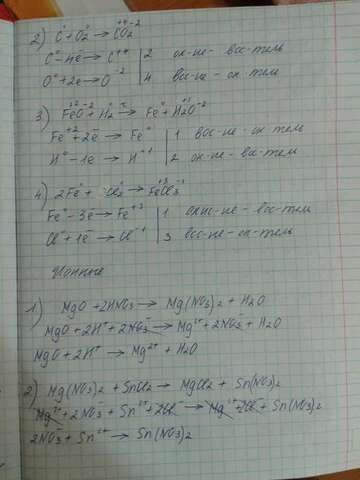 2) C⁰ + O₂⁰ → CO₂ ⁺⁴ ⁻²
C⁰ - 4e̅ → C⁺⁴ | 2 ок-ие - вос-тель
O⁰ + 2e → O⁻² | 4 вос-ие - ок-тель
3) Fe⁺²O⁻² + H₂⁰ → Fe⁰ + H₂⁺¹O⁻²
Fe⁺² + 2e̅ → Fe⁰ | 1 вос-ие - ок-тель
H⁰ - 1e → H⁺¹ | 2 ок-ие - вос-тель
4) 2Fe⁰ + Cl₂⁰ → Fe⁺³Cl₃⁻¹
Fe⁰ - 3e̅ → Fe⁺³ | 1 окис-ие - вос-тель
Cl⁰ + 1e̅ → Cl⁻¹ | 3 вос-ие - ок-тель
Ионные
1) MgO + 2HNO₃ → Mg(NO₃)₂ + H₂O
MgO + 2H⁺ + 2NO₃⁻ → Mg²⁺ + 2NO₃⁻ + H₂O
MgO + 2H⁺ → Mg²⁺ + H₂O
2) Mg(NO₃)₂ + SnCl₂ → MgCl₂ + Sn(NO₃)₂
Mg²⁺ + 2NO₃⁻ + Sn²⁺ + 2Cl⁻ → Mg²⁺ + 2Cl⁻ + Sn(NO₃)₂
2NO₃⁻ + Sn²⁺ → Sn(NO₃)₂